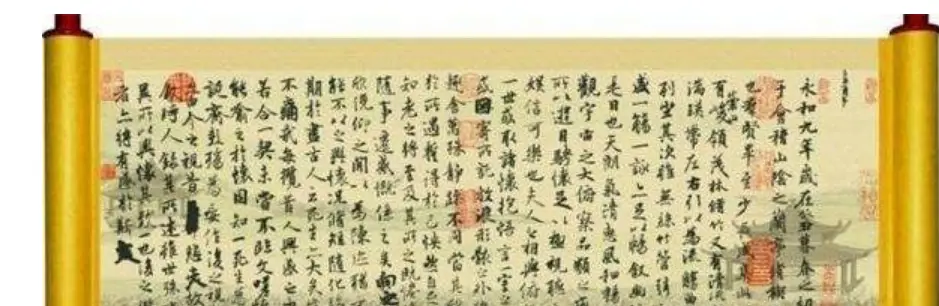 永和九年歲在癸丑暮春之初
于會稽山陰之蘭亭脩禊
也群賢畢至少長咸集
有崇山峻領茂林脩竹又有清流
湍映帶左右引以為流觴曲
列坐其次雖無絲竹管弦
盛一觴一詠亦足以暢敘幽
是日也天朗氣清惠風和暢
觀宇宙之大俯察品類之
所以遊目騁懷足以極視聽
娛信可樂也夫人之相與俯
一世或取諸懷抱悟言一室之
或因寄所託放浪形骸之外
趣舍萬殊靜躁不同當其
於所遇蹔得於己怏然自足
知老之將至及其所之既惓
隨事遷感慨係之矣向之
欣俛仰之閒以為陳跡猶不
能不以之興懷況脩短隨化
期於盡古人云死生亦大矣
不痛哉每攬昔人興感之
若合一契未嘗不臨文嗟
能喻之於懷固知一死生為
誕齊彭殤為妄作後之視
由今之視昔悲夫故
敘時人錄其所述雖世殊
異所以興懷其致一也後之
者亦將有感於斯文